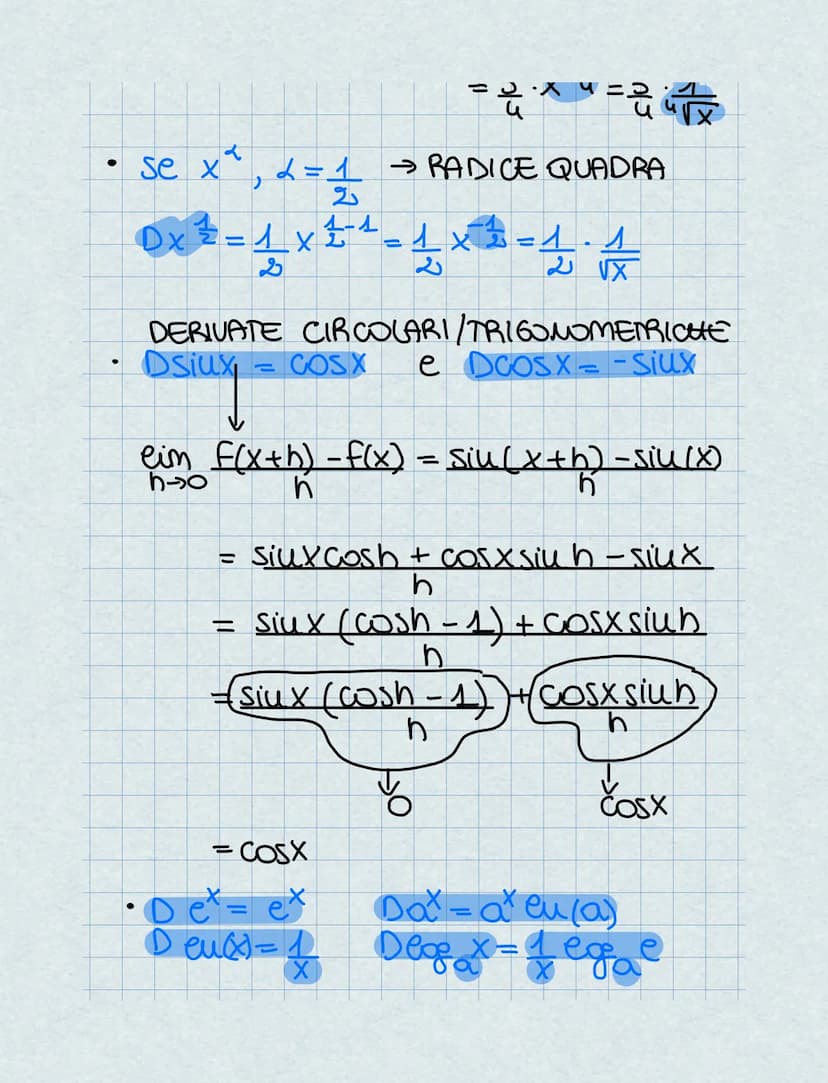 = 3/4 · x 4 = 3/4 · 1/⁴√x
• se x^α, α = 1/2 → RADICE QUADRA
Dx^(1/2) = 1/2 x^(1/2-1) = 1/2 x^(-1/2) = 1/2 · 1/√x
DERIVATE CIRCOLARI/TRIGONOMETRICHE
• Dsinx = cosx e Dcosx = -sinx
↓
lim h→0 (f(x+h) - f(x))/h = (sin(x+h) - sin(x))/h
= (sinxcosh + cosxsinh - sinx)/h
= (sinx(cosh - 1) + cosxsinh)/h
= sinx(cosh - 1)/h + cosxsinh/h
↓ ↓
0 cosx
= cosx
• D e^x = e^x Da^x = a^x ln(a)
D ln(x) = 1/x Dlog_a x = 1/x log_a e